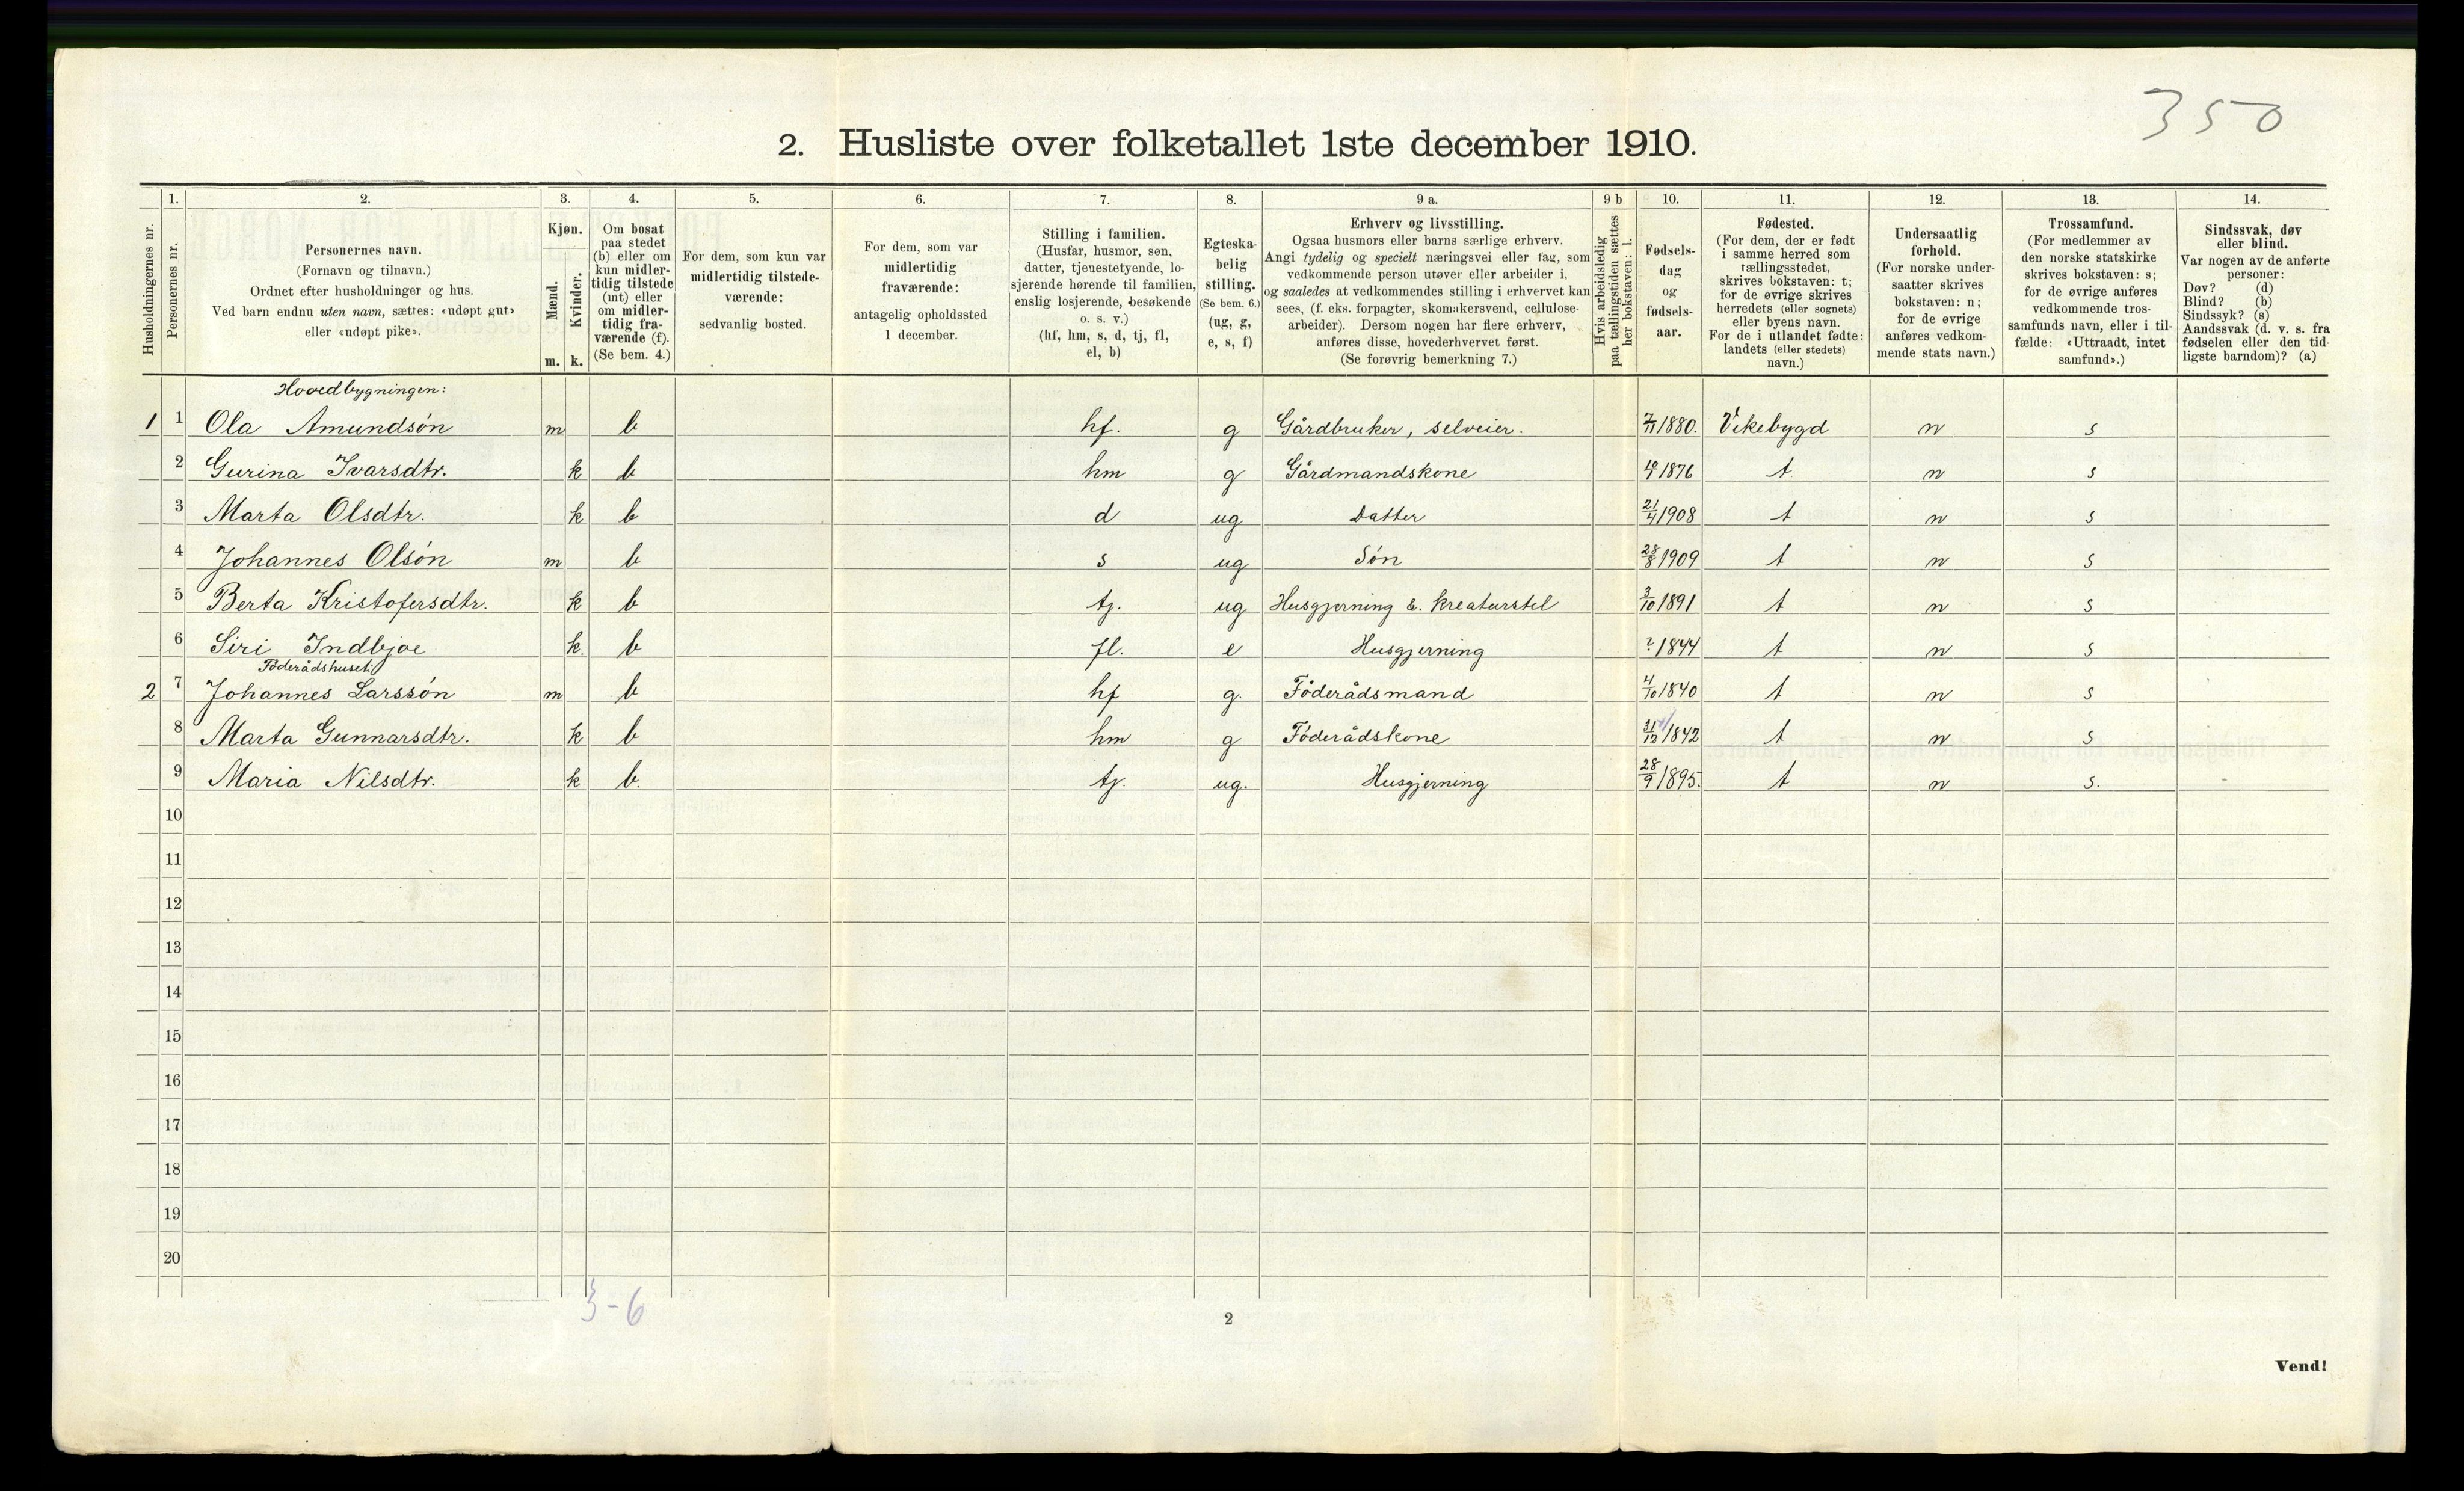 350
2. Husliste over folketallet 1ste december 1910.
1. 2. 3. 4. 5. 6. 7. 8. 9 a. 9 b 10. 11. 12. 13. 14.
Husholdningernes nr.
Personernes nr.
Personernes navn.
(Fornavn og tilnavn.)
Ordnet efter husholdninger og hus.
Ved barn endnu uten navn, sættes: «udøpt gut»
eller «udøpt pike».
Kjøn.
Mænd.
Kvinder.
m. k.
Om bosat
paa stedet
(b) eller om
kun midler-
tidig tilstede
(mt) eller
om midler-
tidig fra-
værende (f).
(Se bem. 4.)
For dem, som kun var
midlertidig tilstede-
værende:
sedvanlig bosted.
For dem, som var
midlertidig
fraværende:
antagelig opholdssted
1 december.
Stilling i familien.
(Husfar, husmor, søn,
datter, tjenestetyende, lo-
sjerende hørende til familien,
enslig losjerende, besøkende
o. s. v.)
(hf, hm, s, d, tj, fl,
el, b)
Egteska-
belig
stilling.
(Se bem. 6.)
(ug, g,
e, s, f)
Erhverv og livsstilling.
Ogsaa husmors eller barns særlige erhverv.
Angi tydelig og specielt næringsvei eller fag, som
vedkommende person utøver eller arbeider i,
og saaledes at vedkommendes stilling i erhvervet kan
sees, (f. eks. forpagter, skomakersvend, cellulose-
arbeider). Dersom nogen har flere erhverv,
anføres disse, hovederhvervet først.
(Se forøvrig bemerkning 7.)
Hvis arbeidsledig
paa tællingstiden sættes
her bokstaven: l.
Fødsels-
dag
og
fødsels-
aar.
Fødested.
(For dem, der er født
i samme herred som
tællingsstedet,
skrives bokstaven: t;
for de øvrige skrives
herredets (eller sognets)
eller byens navn.
For de i utlandet fødte:
landets (eller stedets)
navn.)
Undersaatlig
forhold.
(For norske under-
saatter skrives
bokstaven: n;
for de øvrige
anføres vedkom-
mende stats navn.)
Trossamfund.
(For medlemmer av
den norske statskirke
skrives bokstaven: s;
for de øvrige anføres
vedkommende tros-
samfunds navn, eller i til-
fælde: «Uttraadt, intet
samfund».)
Sindssvak, døv
eller blind.
Var nogen av de anførte
personer:
Døv? (d)
Blind? (b)
Sindssyk? (s)
Aandssvak (d. v. s. fra
fødselen eller den tid-
ligste barndom)? (a)
Hovedbygningen:
1 1 Ola Amundsön m b hf. g Gårdbruker, selveier. 7/11 1880. Vikebygd n s
2 Gurina Ivarsdtr. k b hm g Gårdmandskone 10/1 1876 t n s
3 Marta Olsdtr. k b d ug Datter 21/4 1908 t n s
4 Johannes Olsön m b s ug Sön 28/8 1909 t n s
5 Berta Kristofersdtr. k b tj. ug Husgjerning & kreaturstel 3/10 1891 t n s
6 Siri Indbjoe k. b fl. e Husgjerning ? 1844 t n s
Föderådshuset
2 7 Johannes Larssön m b hf g. Föderådsmand 4/10 1840 t n s
8 Marta Gunnarsdtr. k b hm g Föderådskone 31/12 1842 t n s
9 Maria Nilsdtr. k b. tj. ug. Husgjerning 28/9 1895. t n s.
10
11
12
13
14
15
16
17
18
19
20
3-6
2
Vend!